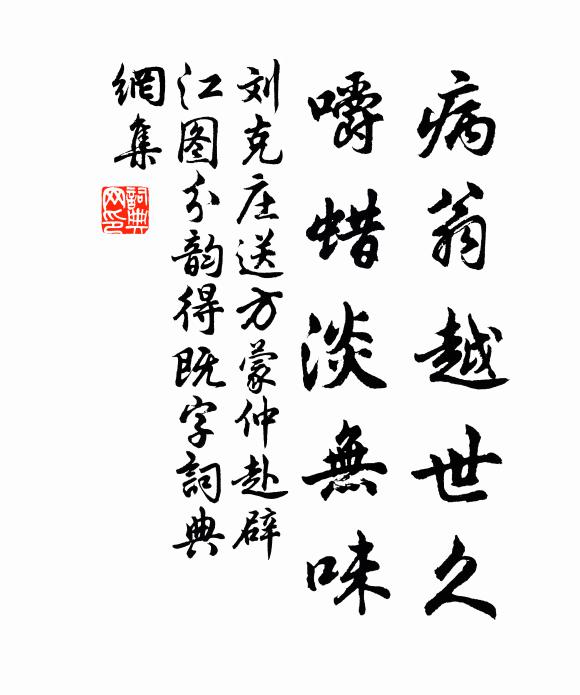 病翁越世久
嚼蜡淡無味
刘克庄送方蒙仲赴辟
江图分韵得既字詞典
網集
詞典
网印